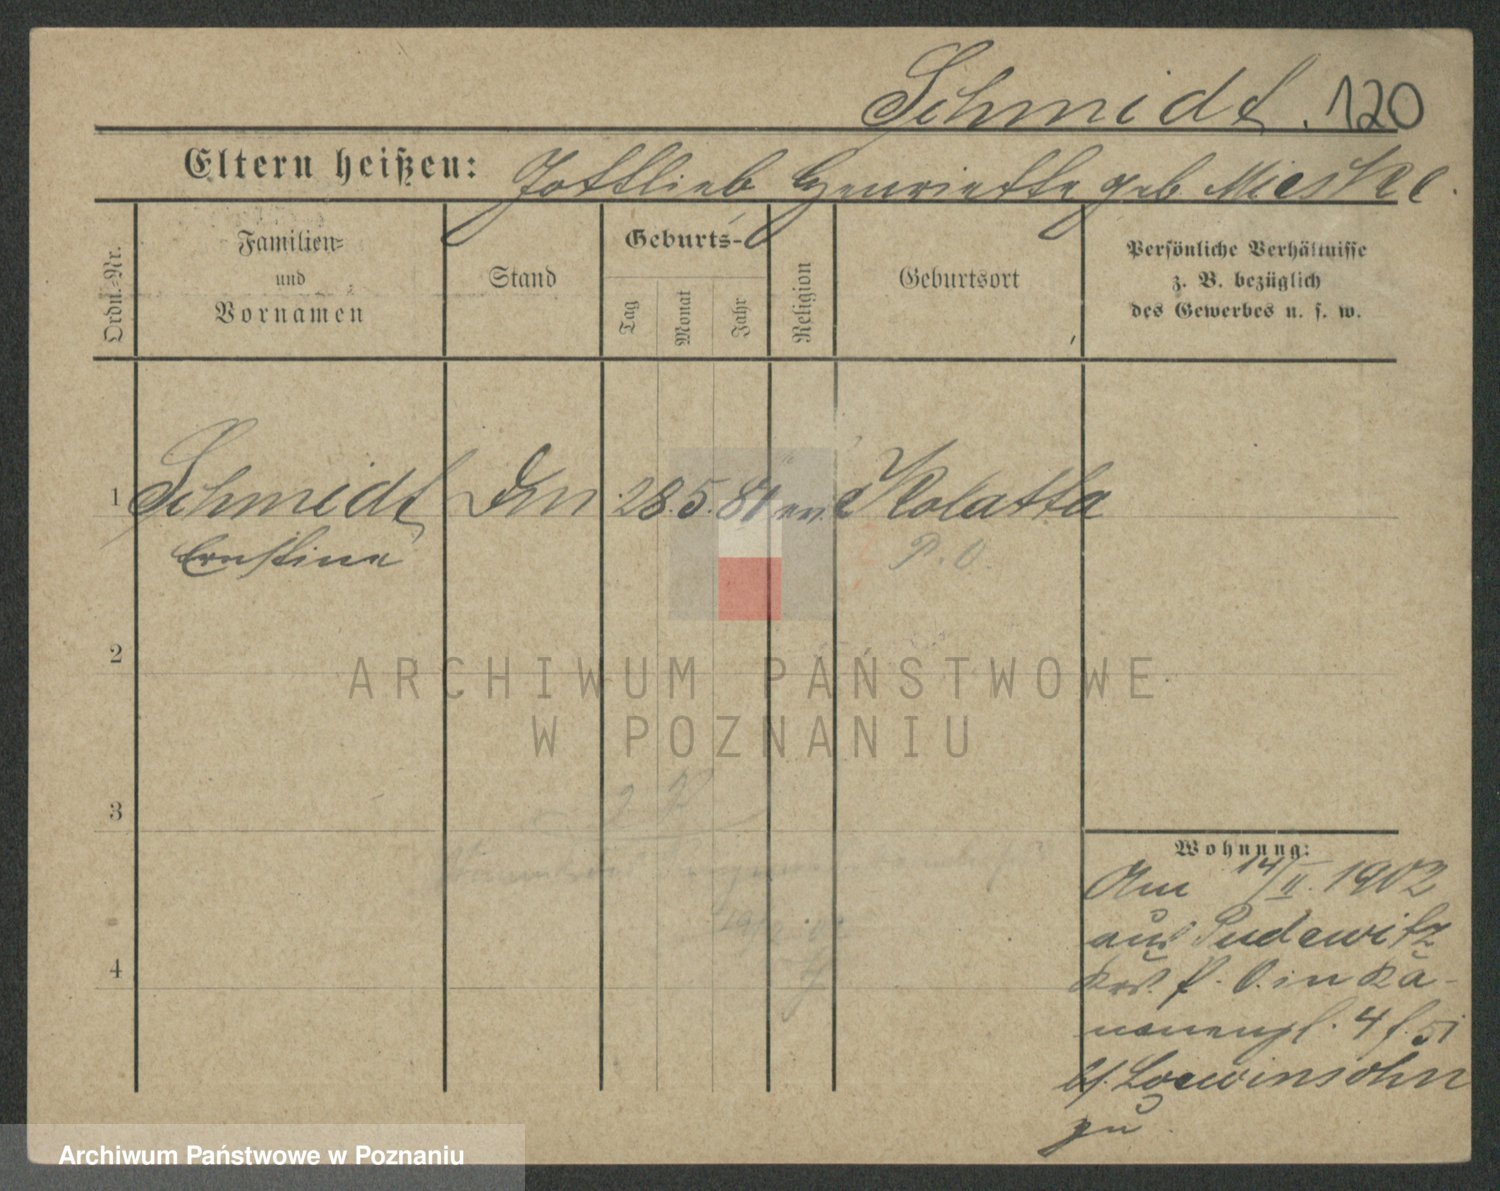 Schmidt. 120
Eltern heißen: Gottlieb Henriette geb Mieske.
Ordn.-Nr.
Familien-
und
Vornamen
Stand
Geburts-
Tag
Monat
Jahr
Religion
Geburtsort
Persönliche Verhältnisse
z. B. bezüglich
des Gewerbes u. s. w.
1 Schmidt 28. 5. 81 ev. Kolatta
Ernstine P. O.
2
3
4
Wohnung:
Am 14/II. 1902
aus Pudewitz
Krs. P. O. in
4
Loewinsohn
zu
ARCHIWUM PAŃSTWOWE
W POZNANIU
Archiwum Państwowe w Poznaniu